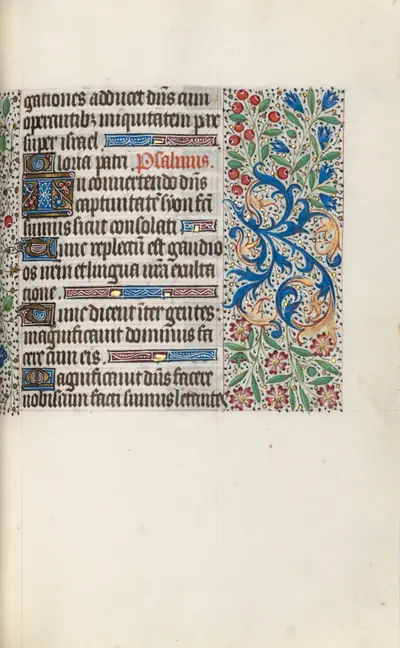 gationes adducet dñs cum
operantibꝫ iniquitatem pax
super israel
Gloria patri Psalmus.
In conuertendo dñs
captiuitatē syon fcī
sumus sicut consolati
Tunc repletū est gaudio
os nrm et lingua nrā exulta
tione.
Tunc dicent iter gentes:
magnificauit dominus fa
cere cum eis.
Magnificauit dñs facere
nobiscum facti sumus letantes